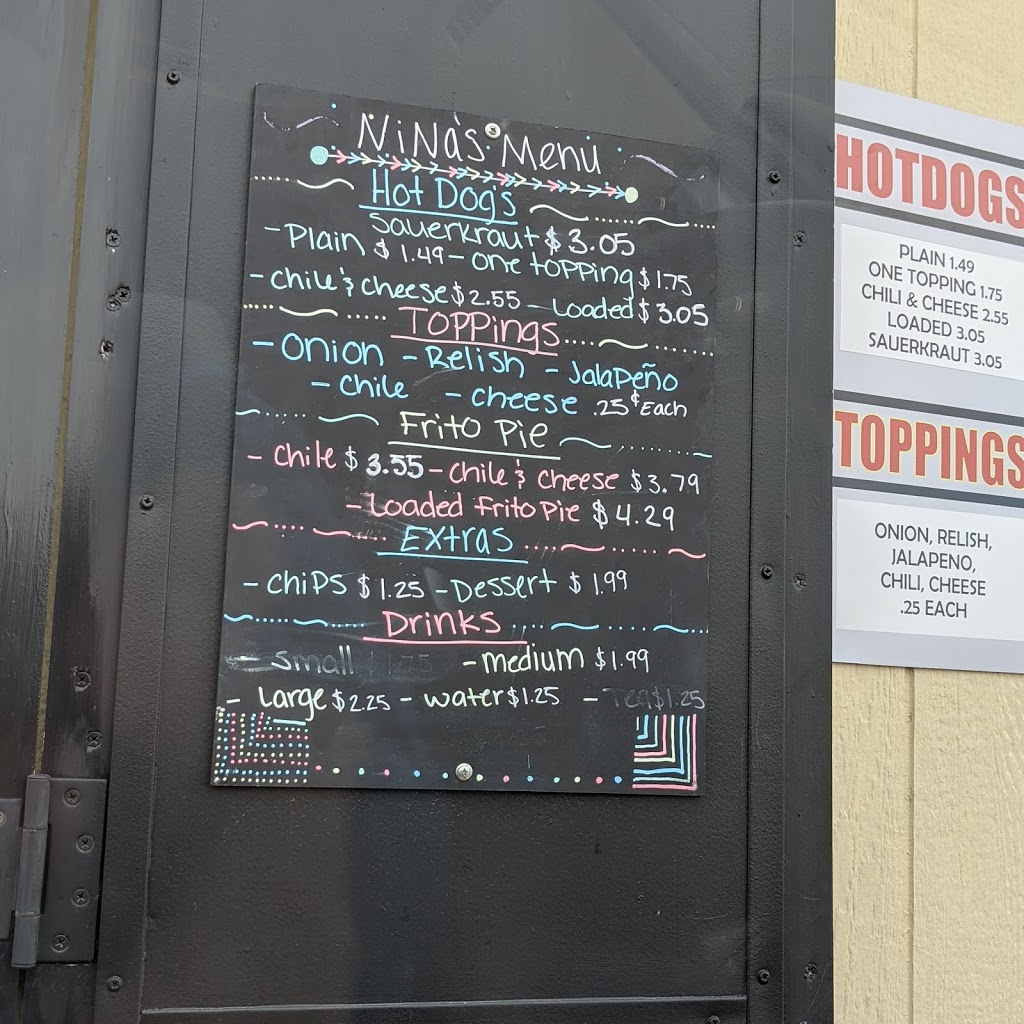 NiNa's Menu
Hot Dogs
Sauerkraut $3.05
- Plain $1.49 - one topping $1.75
- Chile & cheese $2.55 - Loaded $3.05
Toppings
- Onion - Relish - Jalapeño
- Chile - cheese .25¢ Each
Frito Pie
- Chile $3.55 - chile & cheese $3.79
- Loaded Frito Pie $4.29
Extras
- chips $1.25 - Dessert $1.99
Drinks
- small $1.75 - medium $1.99
- Large $2.25 - water $1.25 - Tea $1.25
HOTDOGS
PLAIN 1.49
ONE TOPPING 1.75
CHILI & CHEESE 2.55
LOADED 3.05
SAUERKRAUT 3.05
TOPPINGS
ONION, RELISH,
JALAPENO,
CHILI, CHEESE
.25 EACH